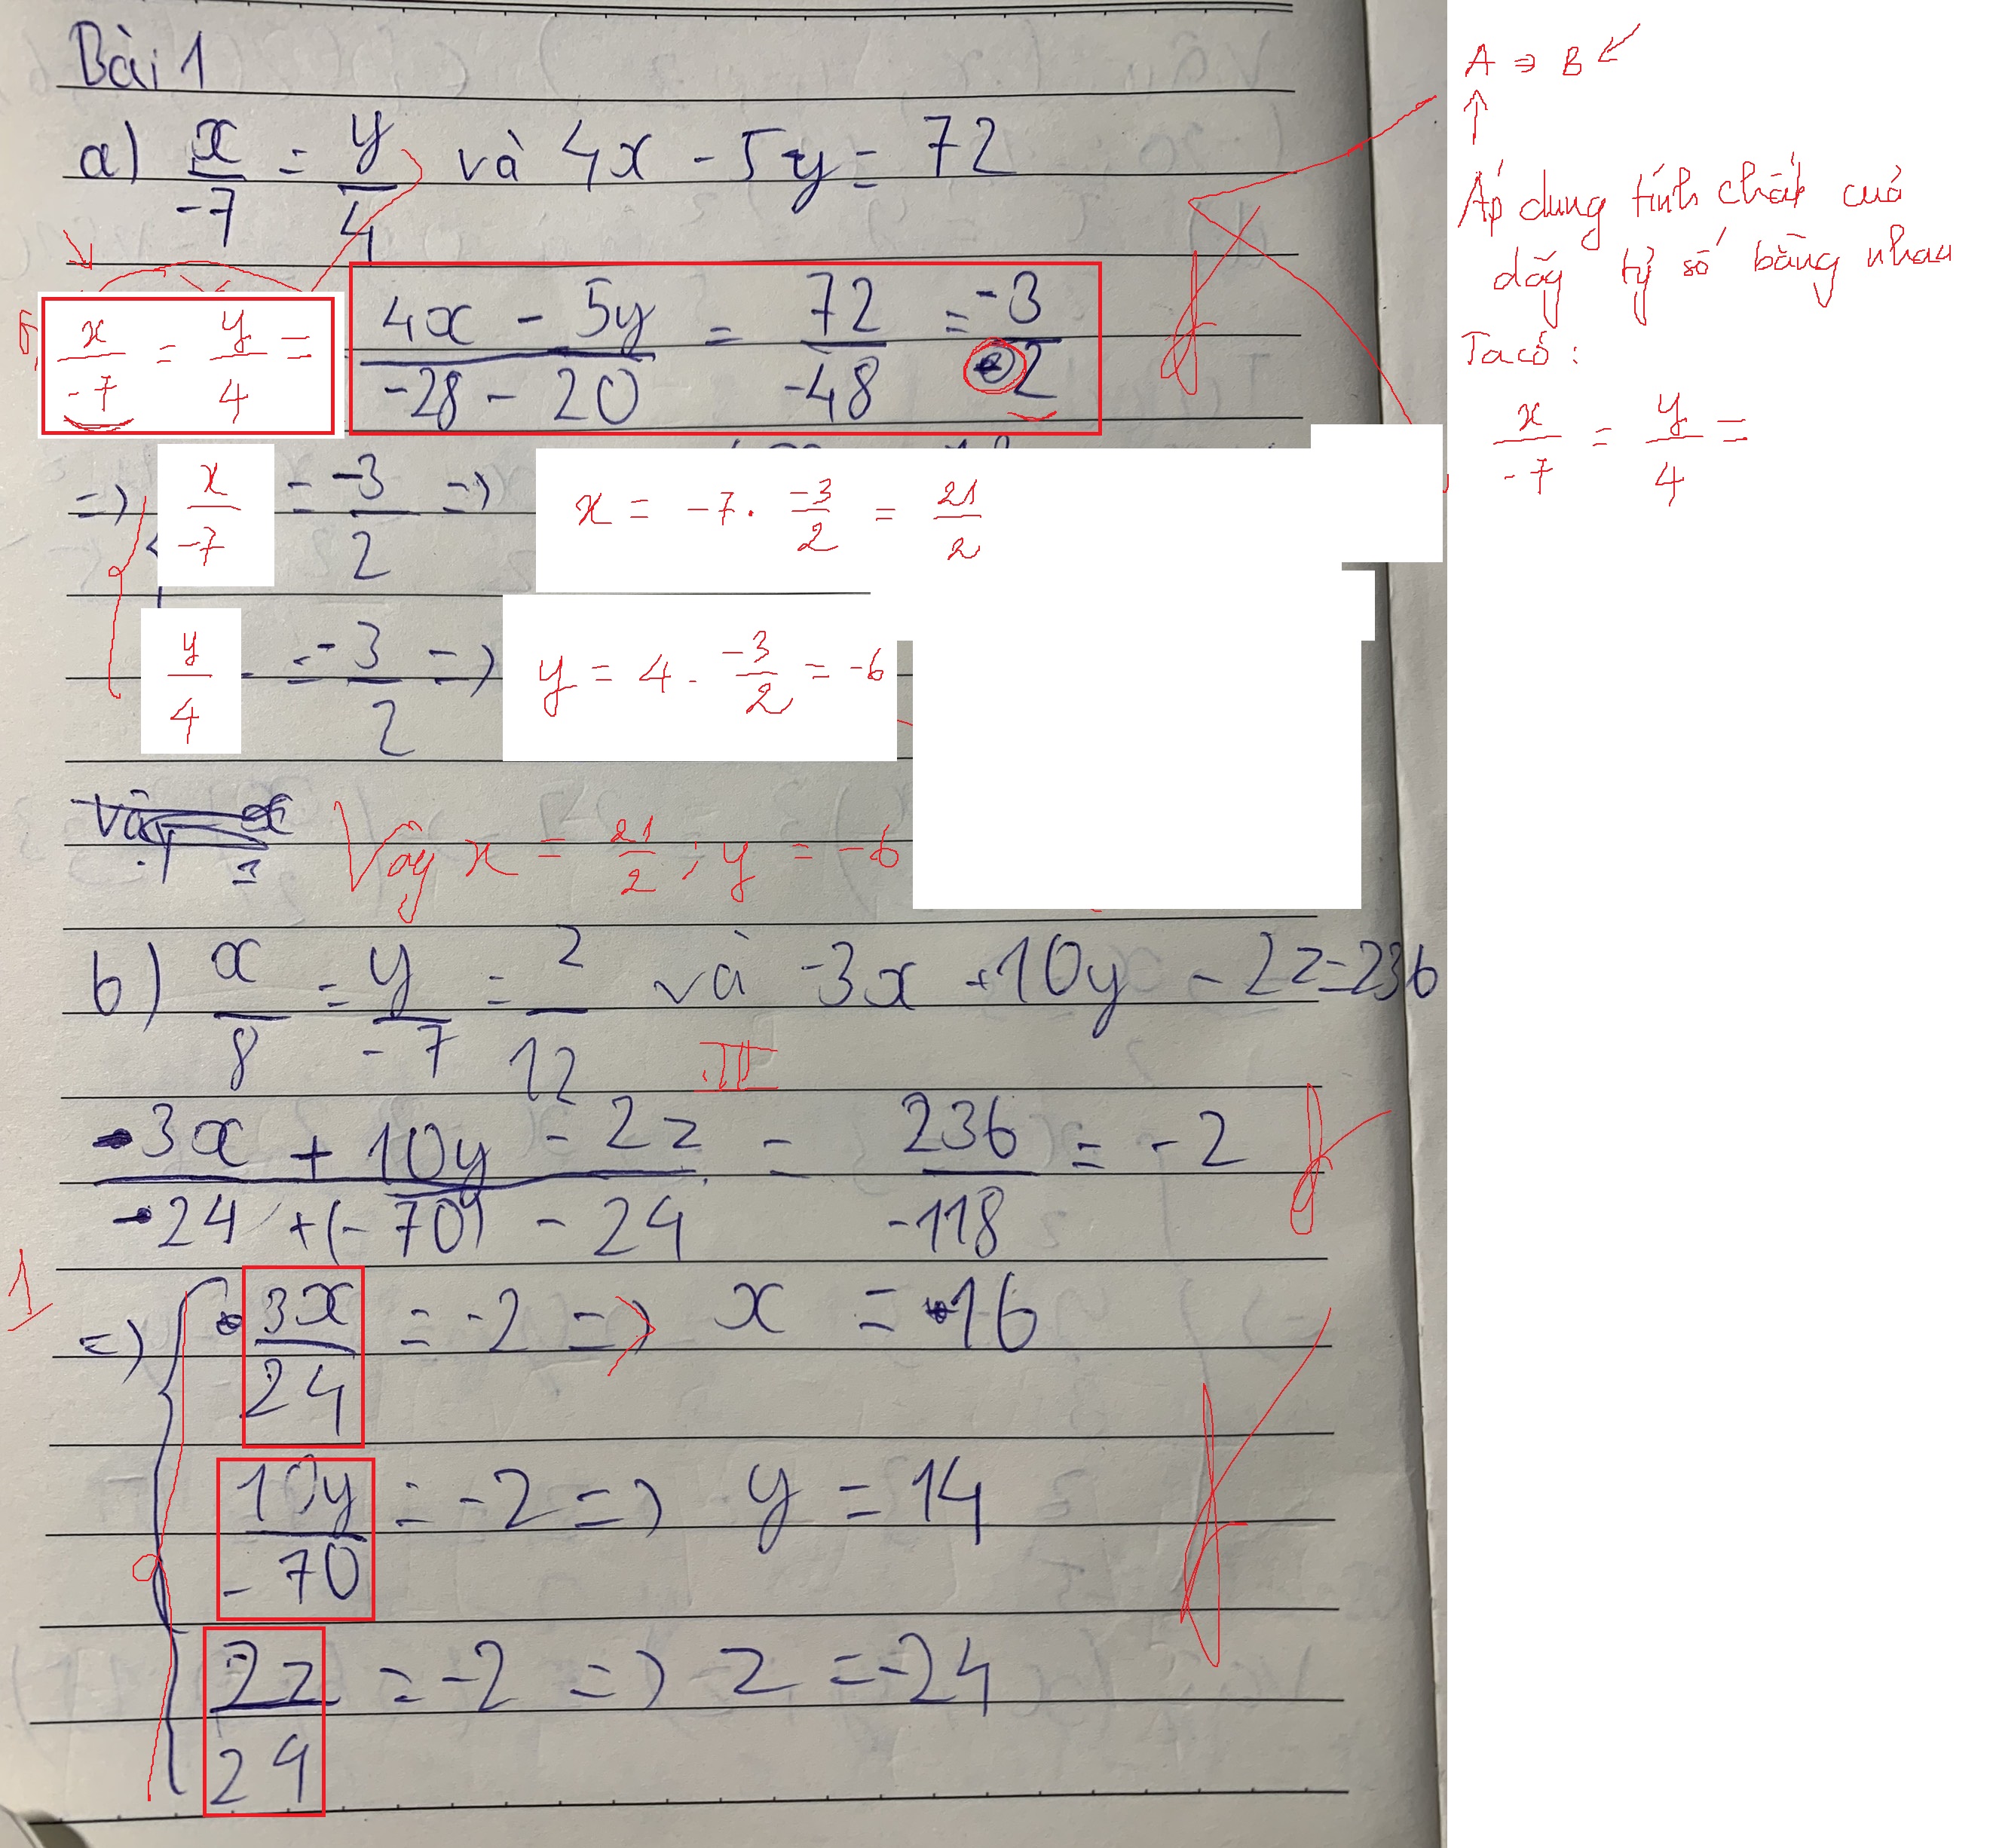 Bài 1
a) x/-7 = y/4 và 4x - 5y = 72
x/-7 = y/4 = (4x - 5y)/(-28 - 20) = 72/-48 = -3/2
=> x/-7 = -3/2 => x = -7 . -3/2 = 21/2
y/4 = -3/2 => y = 4 . -3/2 = -6
Vậy x = 21/2 ; y = -6
b) x/8 = y/-7 = z/12 và -3x + 10y - 2z = 236
(-3x + 10y - 2z)/(-24 + (-70) - 24) = 236/-118 = -2
1
=> 3x/24 = -2 => x = -16
10y/-70 = -2 => y = 14
2z/24 = -2 => z = -24
A => B
Áp dụng tính chất của
dãy tỷ số bằng nhau
Ta có :
x/-7 = y/4 =